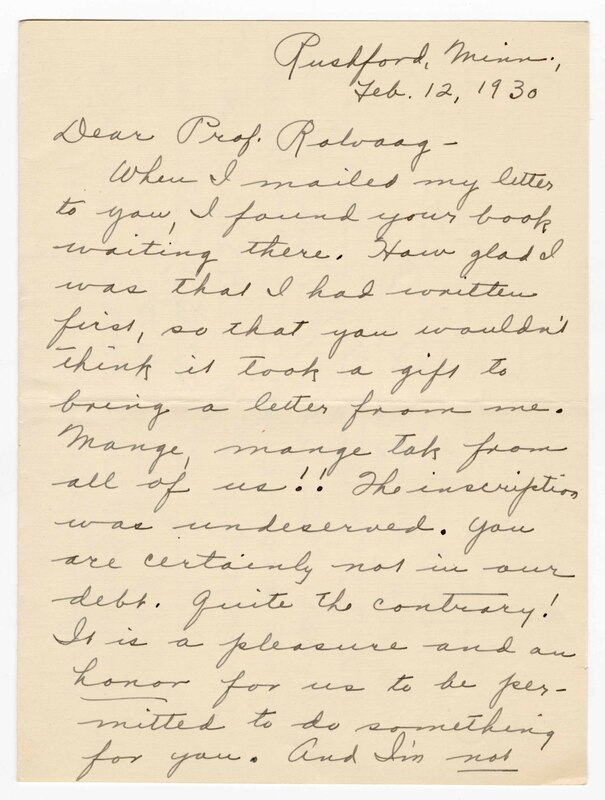 Rushford, Minn.,
Feb. 12, 1930
Dear Prof. Rolvaag –
When I mailed my letter
to you, I found your book
waiting there. How glad I
was that I had written
first, so that you wouldn't
think it took a gift to
bring a letter from me.
Mange, mange tak from
all of us!! The inscription
was undeserved. You
are certainly not in our
debt. Quite the contrary!
It is a pleasure and an
honor for us to be per-
mitted to do something
for you. And I'm not